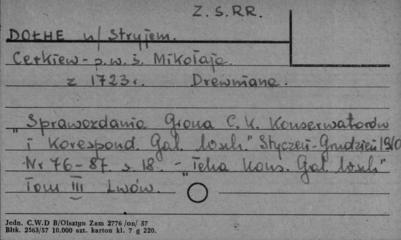 Z.S.RR.
DOŁHE n/Stryjem.
Cerkiew - p.w. ś. Mikołaja.
z 1723 r. Drewniana.
"Sprawozdania Grona C.K. Konserwatorów
i Korespond. Gal. wsch." Styczeń-Grudzień 1910
Nr 76-87. s. 18. - "Teka Kons. Gal. wsch."
Tom III Lwów.
Jedn. C.W.D B/Olsztyn Zam 2776/on/ 57
Bltk. 2563/57 10.000 szt. karton kl. 7 g 220.